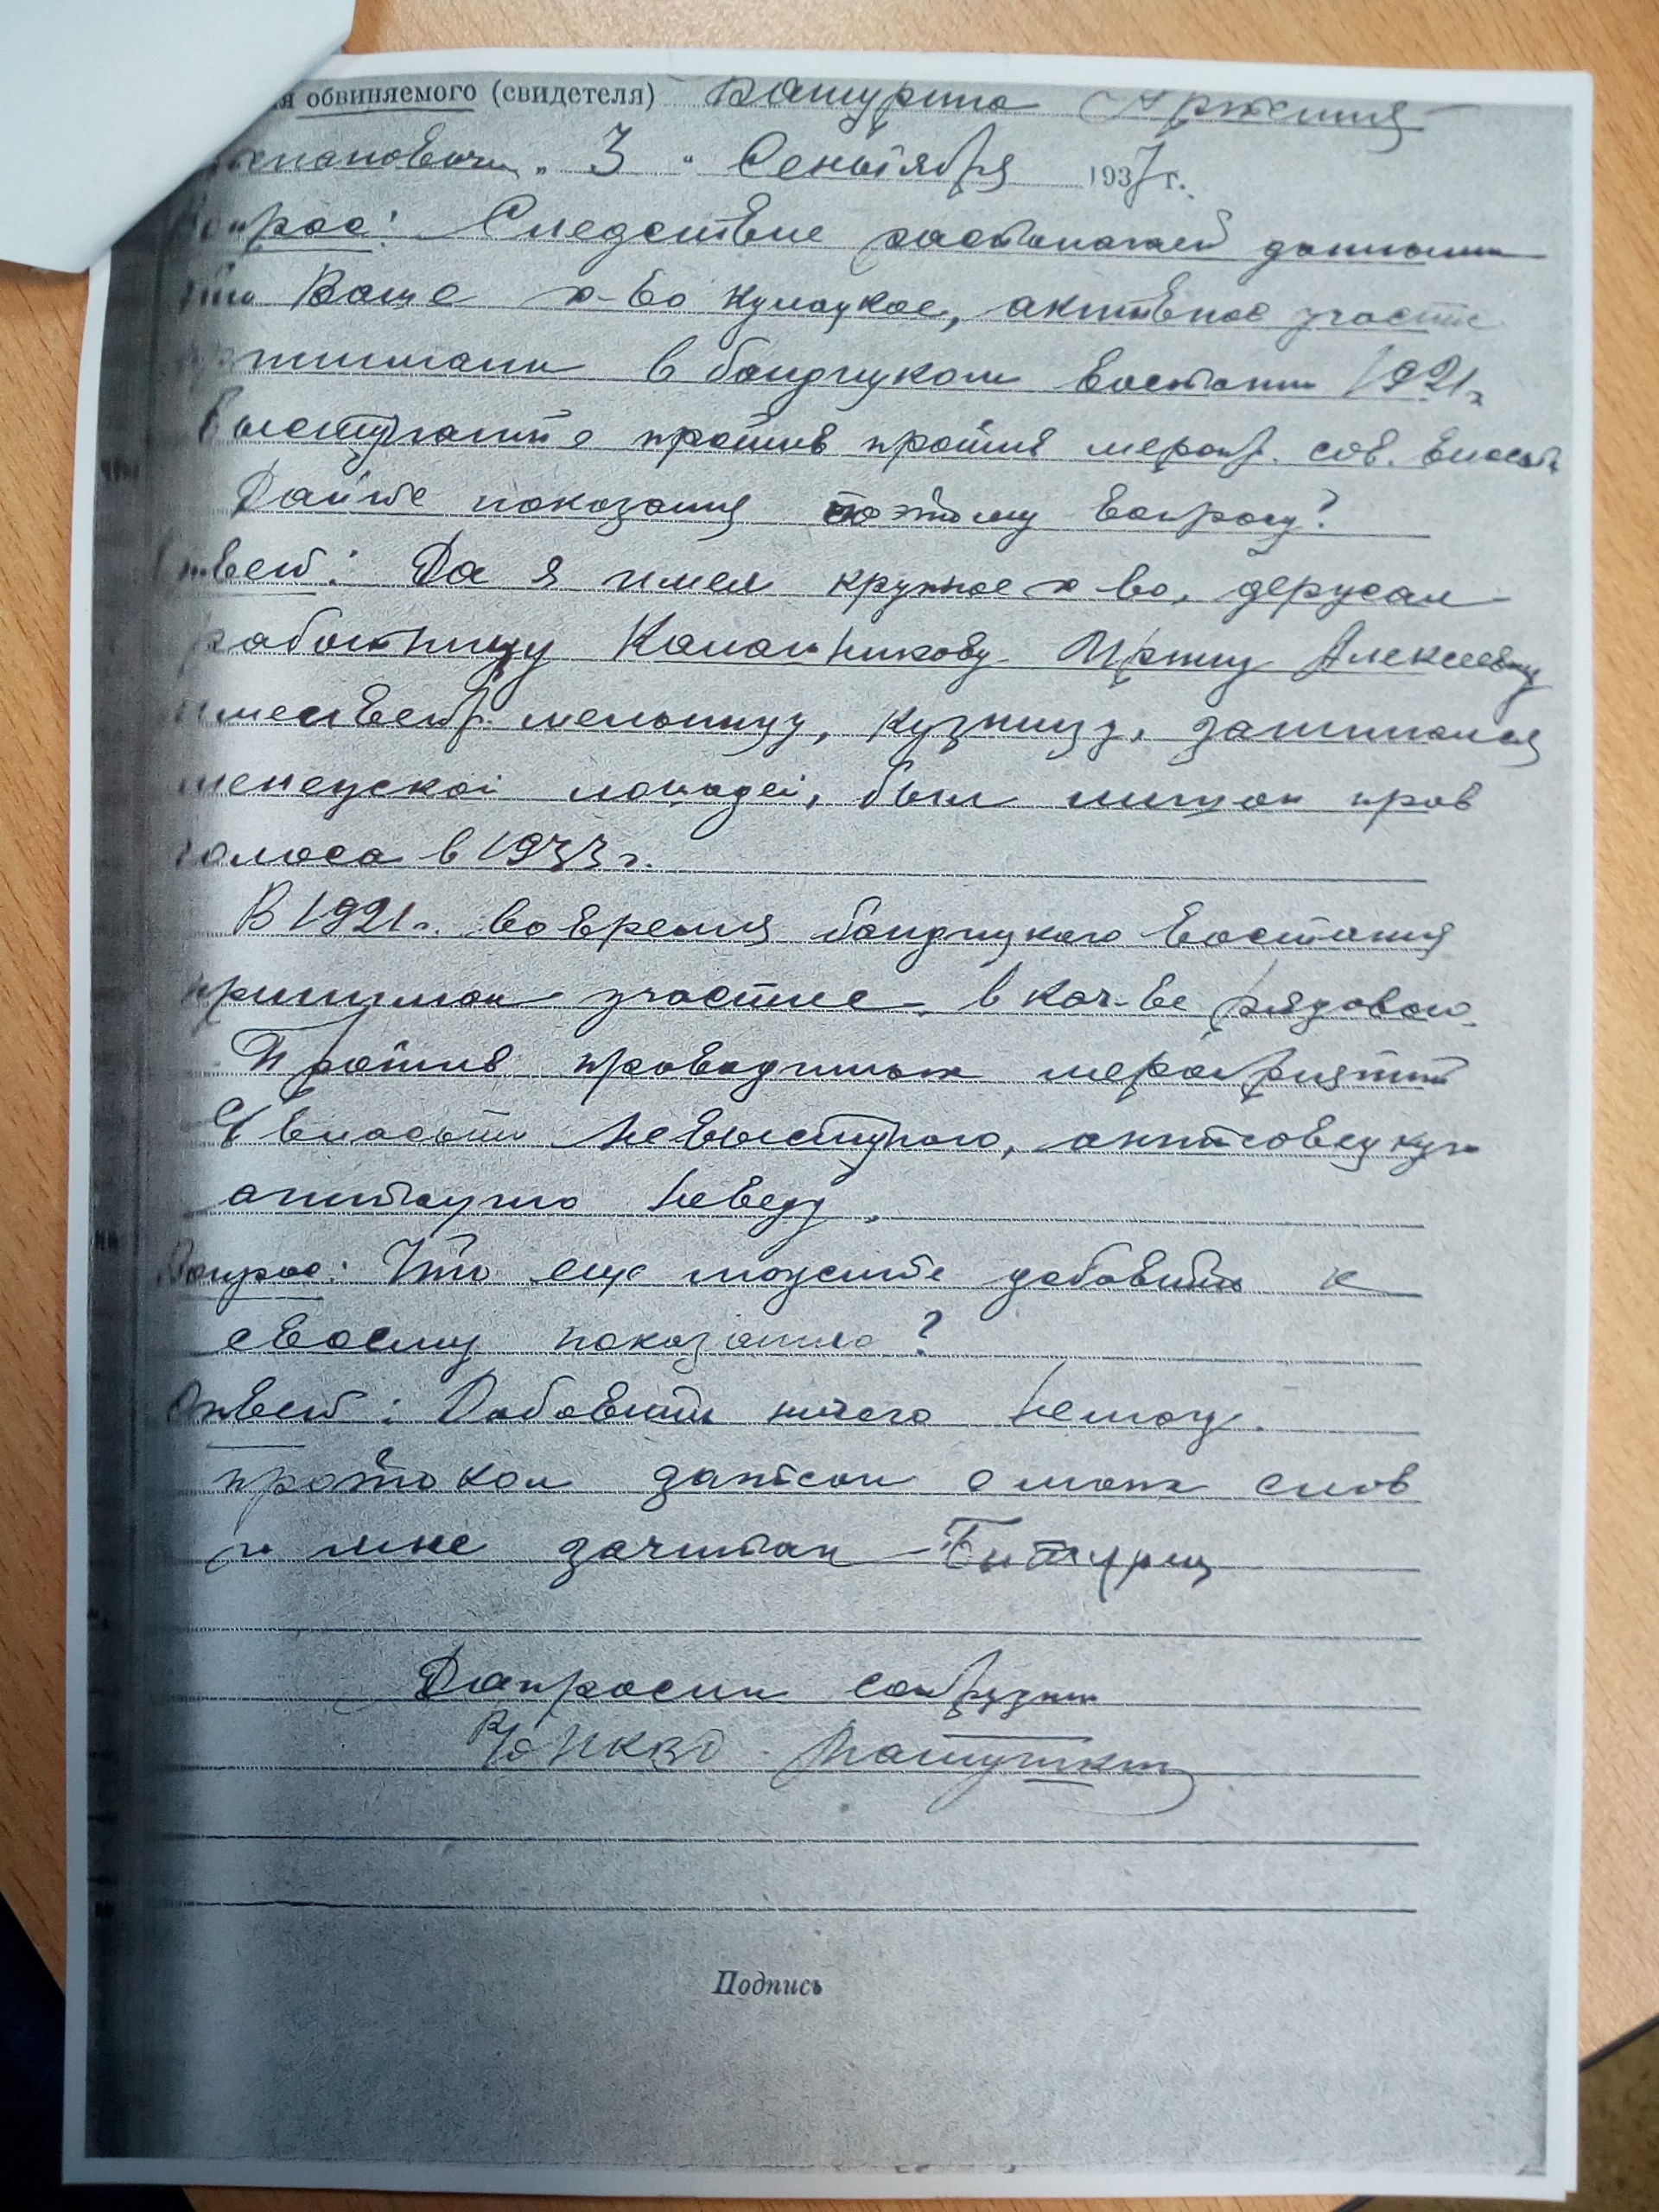 я обвиняемого (свидетеля) Батурина
"3" Сентября 1937 г.
Вопрос: Следствие располагает данными
что Ваше х-во кулацкое, активное участие
принимали в бандицком востании 1921 г.
Выступаете против против меропр. сов. власти
Дайте показания по этому вопросу?
Ответ: Да я имел крупное х-во, держал
работницу Алексеевну
имел ветр. мельницу, кузницу, занимался
лошадей, был лишон прав
голоса в 1933 г.
В 1921 г. во время бандицкого востания
принимал участие в кач-ве рядового.
Против проводимых мероприятий
С/власти невыступаю, антисовецкую
агитацию неведу.
Вопрос: Что еще можете добавить к
своему показанию?
Ответ: Добавить ничего немогу.
протокол записан с моих слов
и мне зачитан Батурин
Допросил сотрудник
НКВД
Подпись